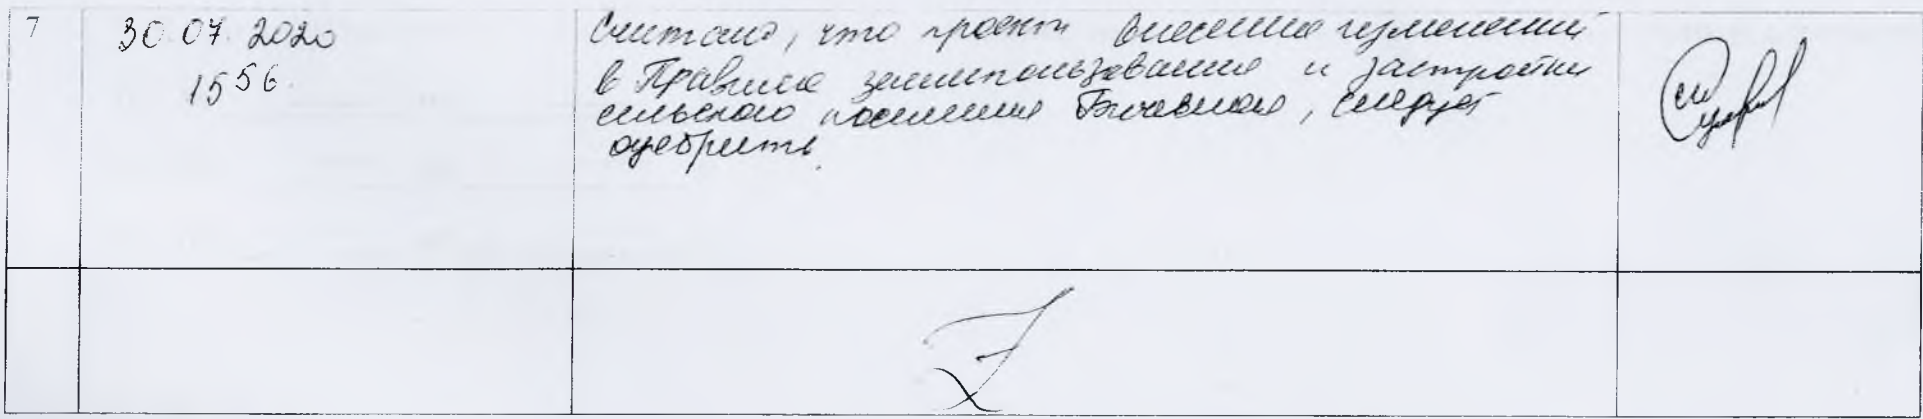 7
30.07.2020
15 56
Считаю, что проект внесения изменений
в Правила землепользования и застройки
сельского поселения, следует
одобрить